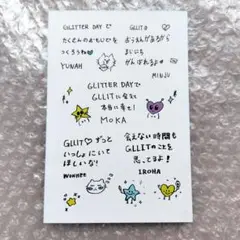 GLITTER DAYで
たくさんのおもいでを
つくろうね
YUNAH
GLLIT
おうえんがあるから
まいにち
がんばれるよ
MINJU
GLITTER DAYで
GLLITに会えて
本当に幸せ!
MOKA
GLLIT♡ずっと
いっしょにいて
ほしいな!
WONHEE
会えない時間も
GLLITのことを
思ってるよ!
IROHA